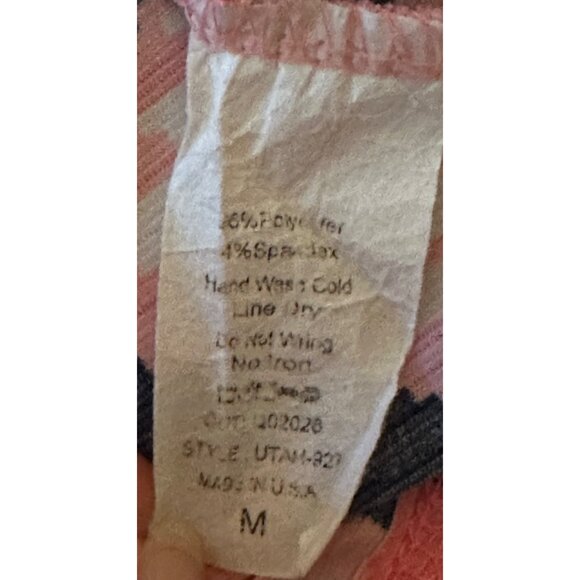 96% Polyester
4% Spandex
Hand Wash Cold
Line Dry
Do Not Wring
No Iron
STYLE: UTAH-327
MADE IN U.S.A
M